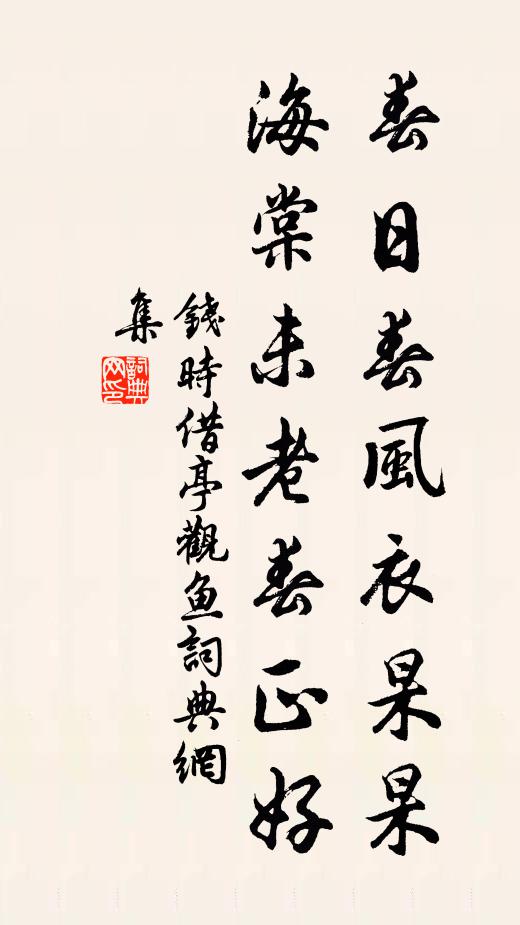 春日春風衣杲杲
海棠未老春正好
錢時借亭觀鱼詞典網
集
詞典
网印